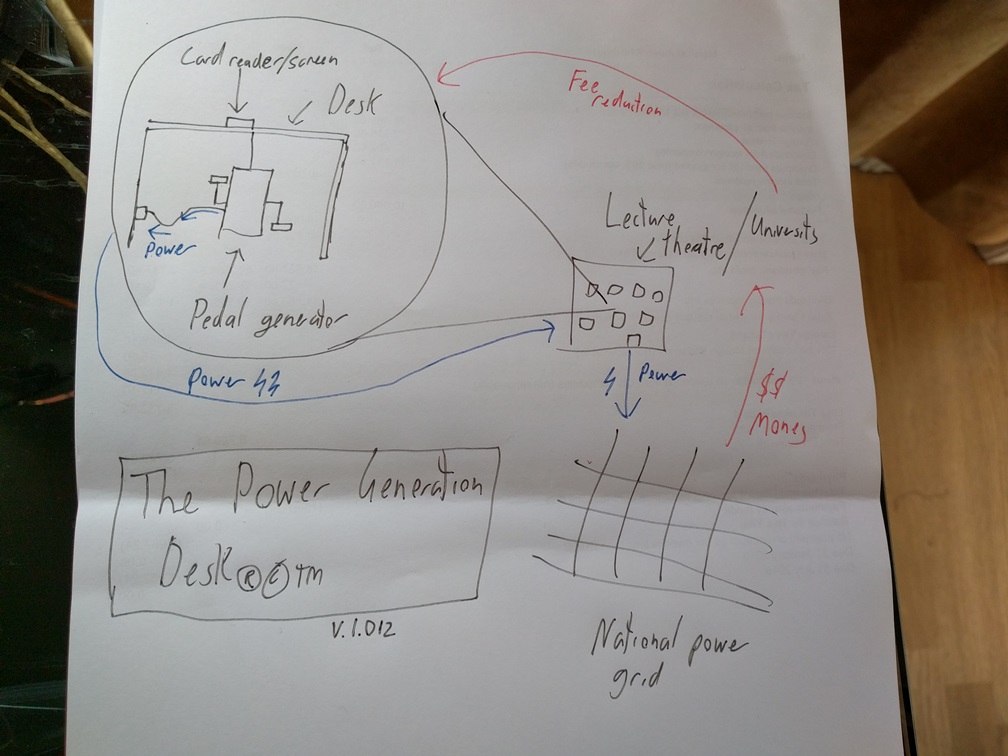 Card reader/screen
Desk
Power
Pedal generator
Power
Fee
reduction
Lecture
theatre
University
Power
$$
Money
The Power Generation
Desk®©TM
V.1.012
National power
grid